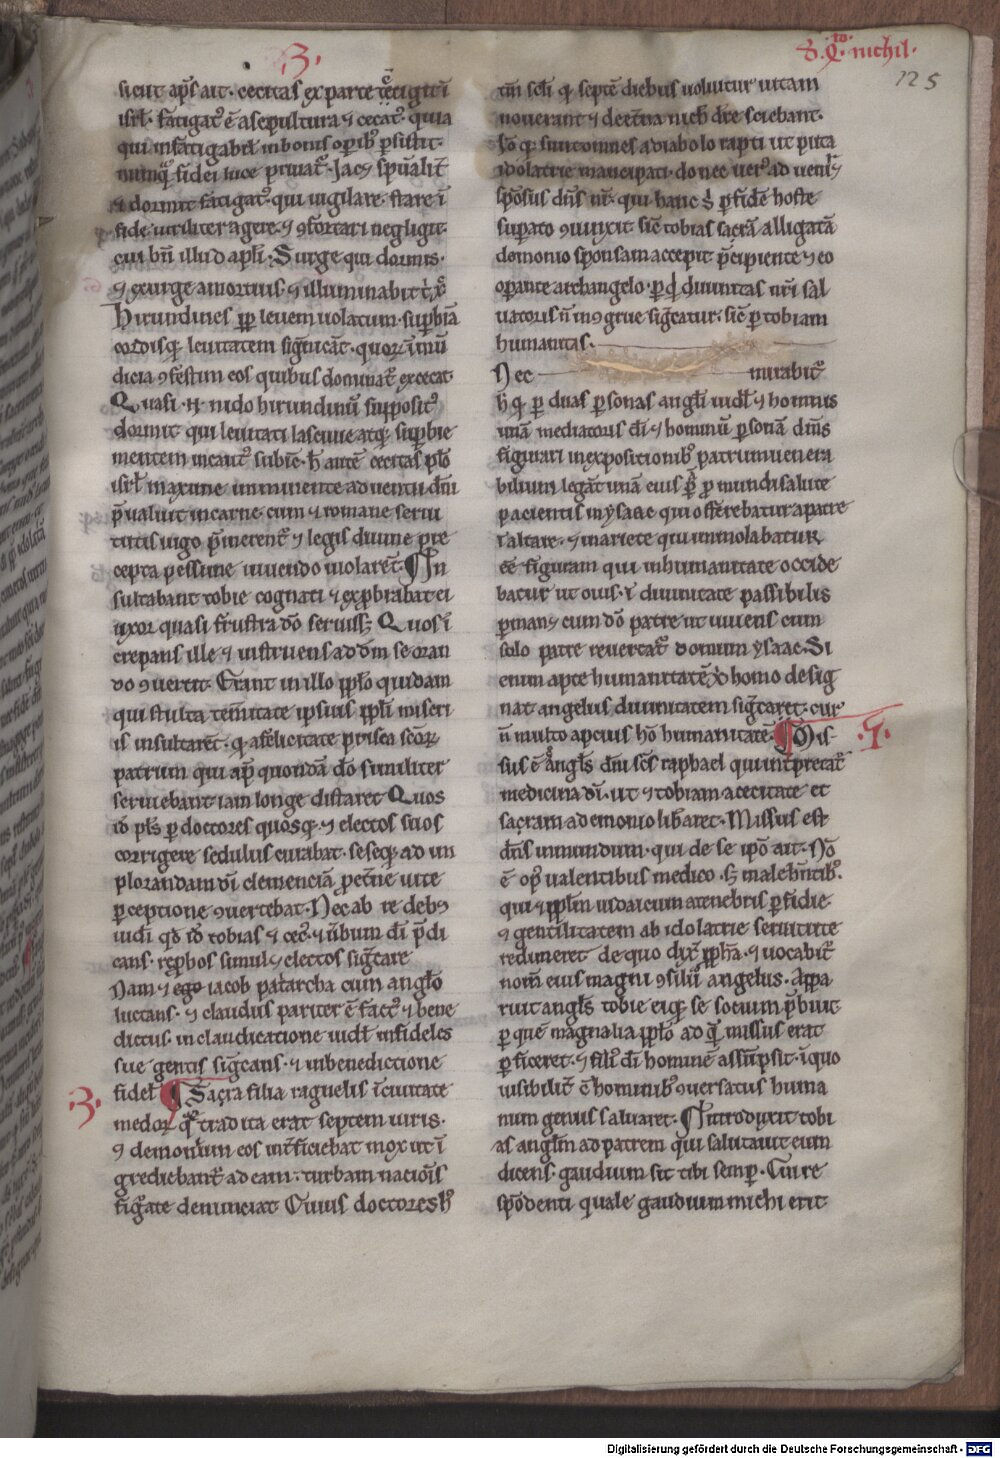 .3.
sicut ap̄s ait. cecitas ex parte ꝯtigit ī
isrl̄. fatigat᷒ ē a sepultura ⁊ cecat᷒. quia
qui infatigabilr̄ in bonis oꝑib᷒ ꝑsistit.
nunq̄ fidei luce priuat᷒. Jacēs sp̄ualit̄
⁊ dormit fatigat᷒. qui uigilare. stare ī
fide uiriliter agere. ⁊ ꝯfortari negligit.
cui bn̄ illud apl̄i. Surge qui dormis.
⁊ exurge a mortuis. ⁊ illuminabit t̄ xp̄c
Hirundines ꝓp̄ leuem uolatum. suꝑbiā
cordisq̄ leuitatem sig̅nicāt. quoꝝ īmū
dicia ꝯfestim eos quibus dominat᷒ excecat.
Quasi .n. nido hirundinū supposit᷒
dormit qui leuitati lasciuie atq̄ suꝑbie
mentem incaut᷒ subic̄. h̄ autē cecitas pl̄o
isrl̄ maxime imminente aduentu dn̄i
p̄ualuit in carne. cum ⁊ romane serui
tutis iugo p̄merent᷒ ⁊ legis diuine pre
cepta pessime uiuendo uiolarēt. ¶In
sultabant tobie cognati ⁊ exꝓbrabat ei
uxor quasi frustra dō seruiss; Quos ī
crepans ille ⁊ instruens ad dm̄ se oran
do ꝯuertit. Erant in illo ppl̄o quidam
qui stulta tem̄itate ipsius ppl̄i miseri
is insultarēt. q̄ a felicitate prisca sc̄oꝝ
patrum qui ap̄ quondā dō similiter
seruiebant iam longe distaret Quos
iō pl̄s ꝑ doctores quosq̄. ⁊ electos suos
corrigere sedulus curabat. seseq̄ ad im
plorandam dī clemenciā. ꝓ et̄ne uite
ꝑceptione ꝯuertebat. Nec ab re deb᷒
uidi qd̄ iō tobias ⁊ cec᷒. ⁊ ūbum dī p̄di
cans. rep̄bos simul ⁊ electos sig̅care
Nam ⁊ ego iacob pat̄archa cum anglo
luctans. ⁊ claudus pariter ē fact᷒ ⁊ bene
dictus. in claudicatione uidl̄ infideles
sue gentis sig̅cans. ⁊ in benedictione
fidel̄ ¶Sara filia raguelis ī ciuitate
medoꝝ q̄ tradita erat septem uiris.
⁊ demonium eos int̄ficiebat mox ut ī
grediebant᷒ ad eam. turbam nacioīs
figate denunciat Cuius doctores h᷒
.3.
S. Q. m̄. nichil.
125
tm̄ sc̄li q̄ septē diebus uoluitur uitam
nouerant ⁊ de et̄na nich̄ dr̄e sciebant.
Iō q̄ sunt omnes a diabolo rapti ut puta
idolatrie mancipati. donec uer᷒ adueniēs
spōsus dn̄s nr̄. qui hanc s; ꝑ fidē hoste
suꝑato ꝯiunxit sic̄ tobias sarrā alligatā
demonio sponsam accepit p̄cipiente ⁊ eo
oꝑante archangelo. ꝑ q̄ diuinitas nr̄i sal
uatoris n̄ inꝯgrue sig̅catur. sic̄ ꝑ tobiam
humanitas.
Nec mirabit᷒
h̄ q̄ ꝑ duas ꝑsonas angli uidl̄ ⁊ hominis
unā mediatoris dī ⁊ hominū ꝑsonā dm̄s
figurari in expositionib᷒ patrum uenera
bilium legāt unā eius ꝑs̄ ꝓ mundi salute
pacientis in ysaac qui offerebatur a patre
ī altare. ⁊ in ariete qui immolabatur
eē figuram qui in humanitate occide
batur ut ouis. ī diuinitate passibilis
ꝑmanēs cum dō patre ut uiuens cum
solo patre reuertat᷒ domum ysaac. Si
enim apte humanitatē xp̄i homo desig
nat angelus diuinitatem sig̅caret. cur
n̄ multo apcius hō humanitatē ¶Mis-
sus ē anglīs dn̄i scs̄ raphael qui int̄pretat᷒
medicina dī. ut ⁊ tobiam a cecitate et
sarram a demonio libaret. Missus est
dn̄s in mundum. qui de se ipō ait. Nō
ē op᷒ ualentibus medico. s; male hn̄tib᷒.
qui ⁊ ppl̄m iudaicum a tenebris ꝑfidie
⁊ gentilitatem ab idolatrie seruitute
redimeret de quo dix̄ ꝓph̄a. ⁊ uocabit᷒
nom̄ eius magni ꝯsilii angelus. Appa
ruit angl̄s tobie eiq̄ se socium p̄buit
ꝑ quē magnalia ppl̄o ad q̄ missus erat
ꝑficeret. ⁊ fili᷒ dī hominē assūpsit. ī quo
uisibilit̄ ē hominib᷒ ꝯuersatus huma
num genus saluaret. ¶Introduxit tobi
as angl̄m ad patrem qui salutauit eum
dicens. gaudium sit tibi semp̄. Cui re
spōdenti quale gaudium michi erit
.4.
Digitalisierung gefördert durch die Deutsche Forschungsgemeinschaft - DFG